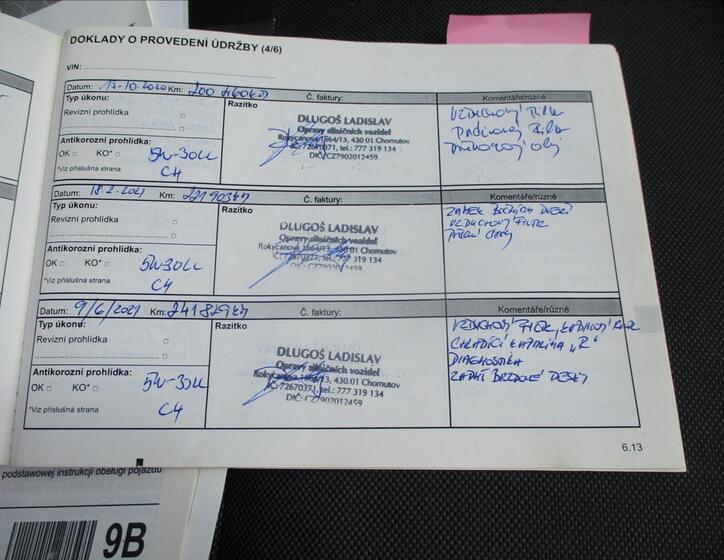 DOKLADY O PROVEDENÍ ÚDRŽBY (4/6)
VIN:
Datum: 17-10-2020 Km: 200
Č. faktury:
Komentáře/různé
Typ úkonu:
Razítko
Revizní prohlídka
Antikorozní prohlídka:
OK KO*
*Viz příslušná strana
5W-30LL
C4
DLUGOŠ LADISLAV
Opravy silničních vozidel
Rokycanova 1864/13, 430 01 Chomutov
IČ:72670371, tel.: 777 319 134
DIČ:CZ7902012459
VZDUCHOVÝ FILTR
Datum: 18.2.2021 Km: 221903km
Č. faktury:
Komentáře/různé
Typ úkonu:
Razítko
Revizní prohlídka
Antikorozní prohlídka:
OK KO*
*Viz příslušná strana
5W-30LL
C4
DLUGOŠ LADISLAV
Opravy silničních vozidel
Rokycanova 1864/13, 430 01 Chomutov
IČ:72670371, tel.: 777 319 134
DIČ:CZ7902012459
ZÁMEK DVEŘÍ
VZDUCHOVÝ FILTR
Datum: 9/6/2021 Km: 241829km
Č. faktury:
Komentáře/různé
Typ úkonu:
Razítko
Revizní prohlídka
Antikorozní prohlídka:
OK KO*
*Viz příslušná strana
5W-30LL
C4
DLUGOŠ LADISLAV
Opravy silničních vozidel
Rokycanova 1864/13, 430 01 Chomutov
IČ:72670371, tel.: 777 319 134
DIČ: CZ7902012459
VZDUCHOVÝ FILTR, KABINOVÝ FILTR
CHLADÍCÍ KAPALINA "R"
DIAGNOSTIKA
ZADNÍ BRZDOVÉ DESKY
6.13
podstawowej instrukcji obsługi pojazdu
9B